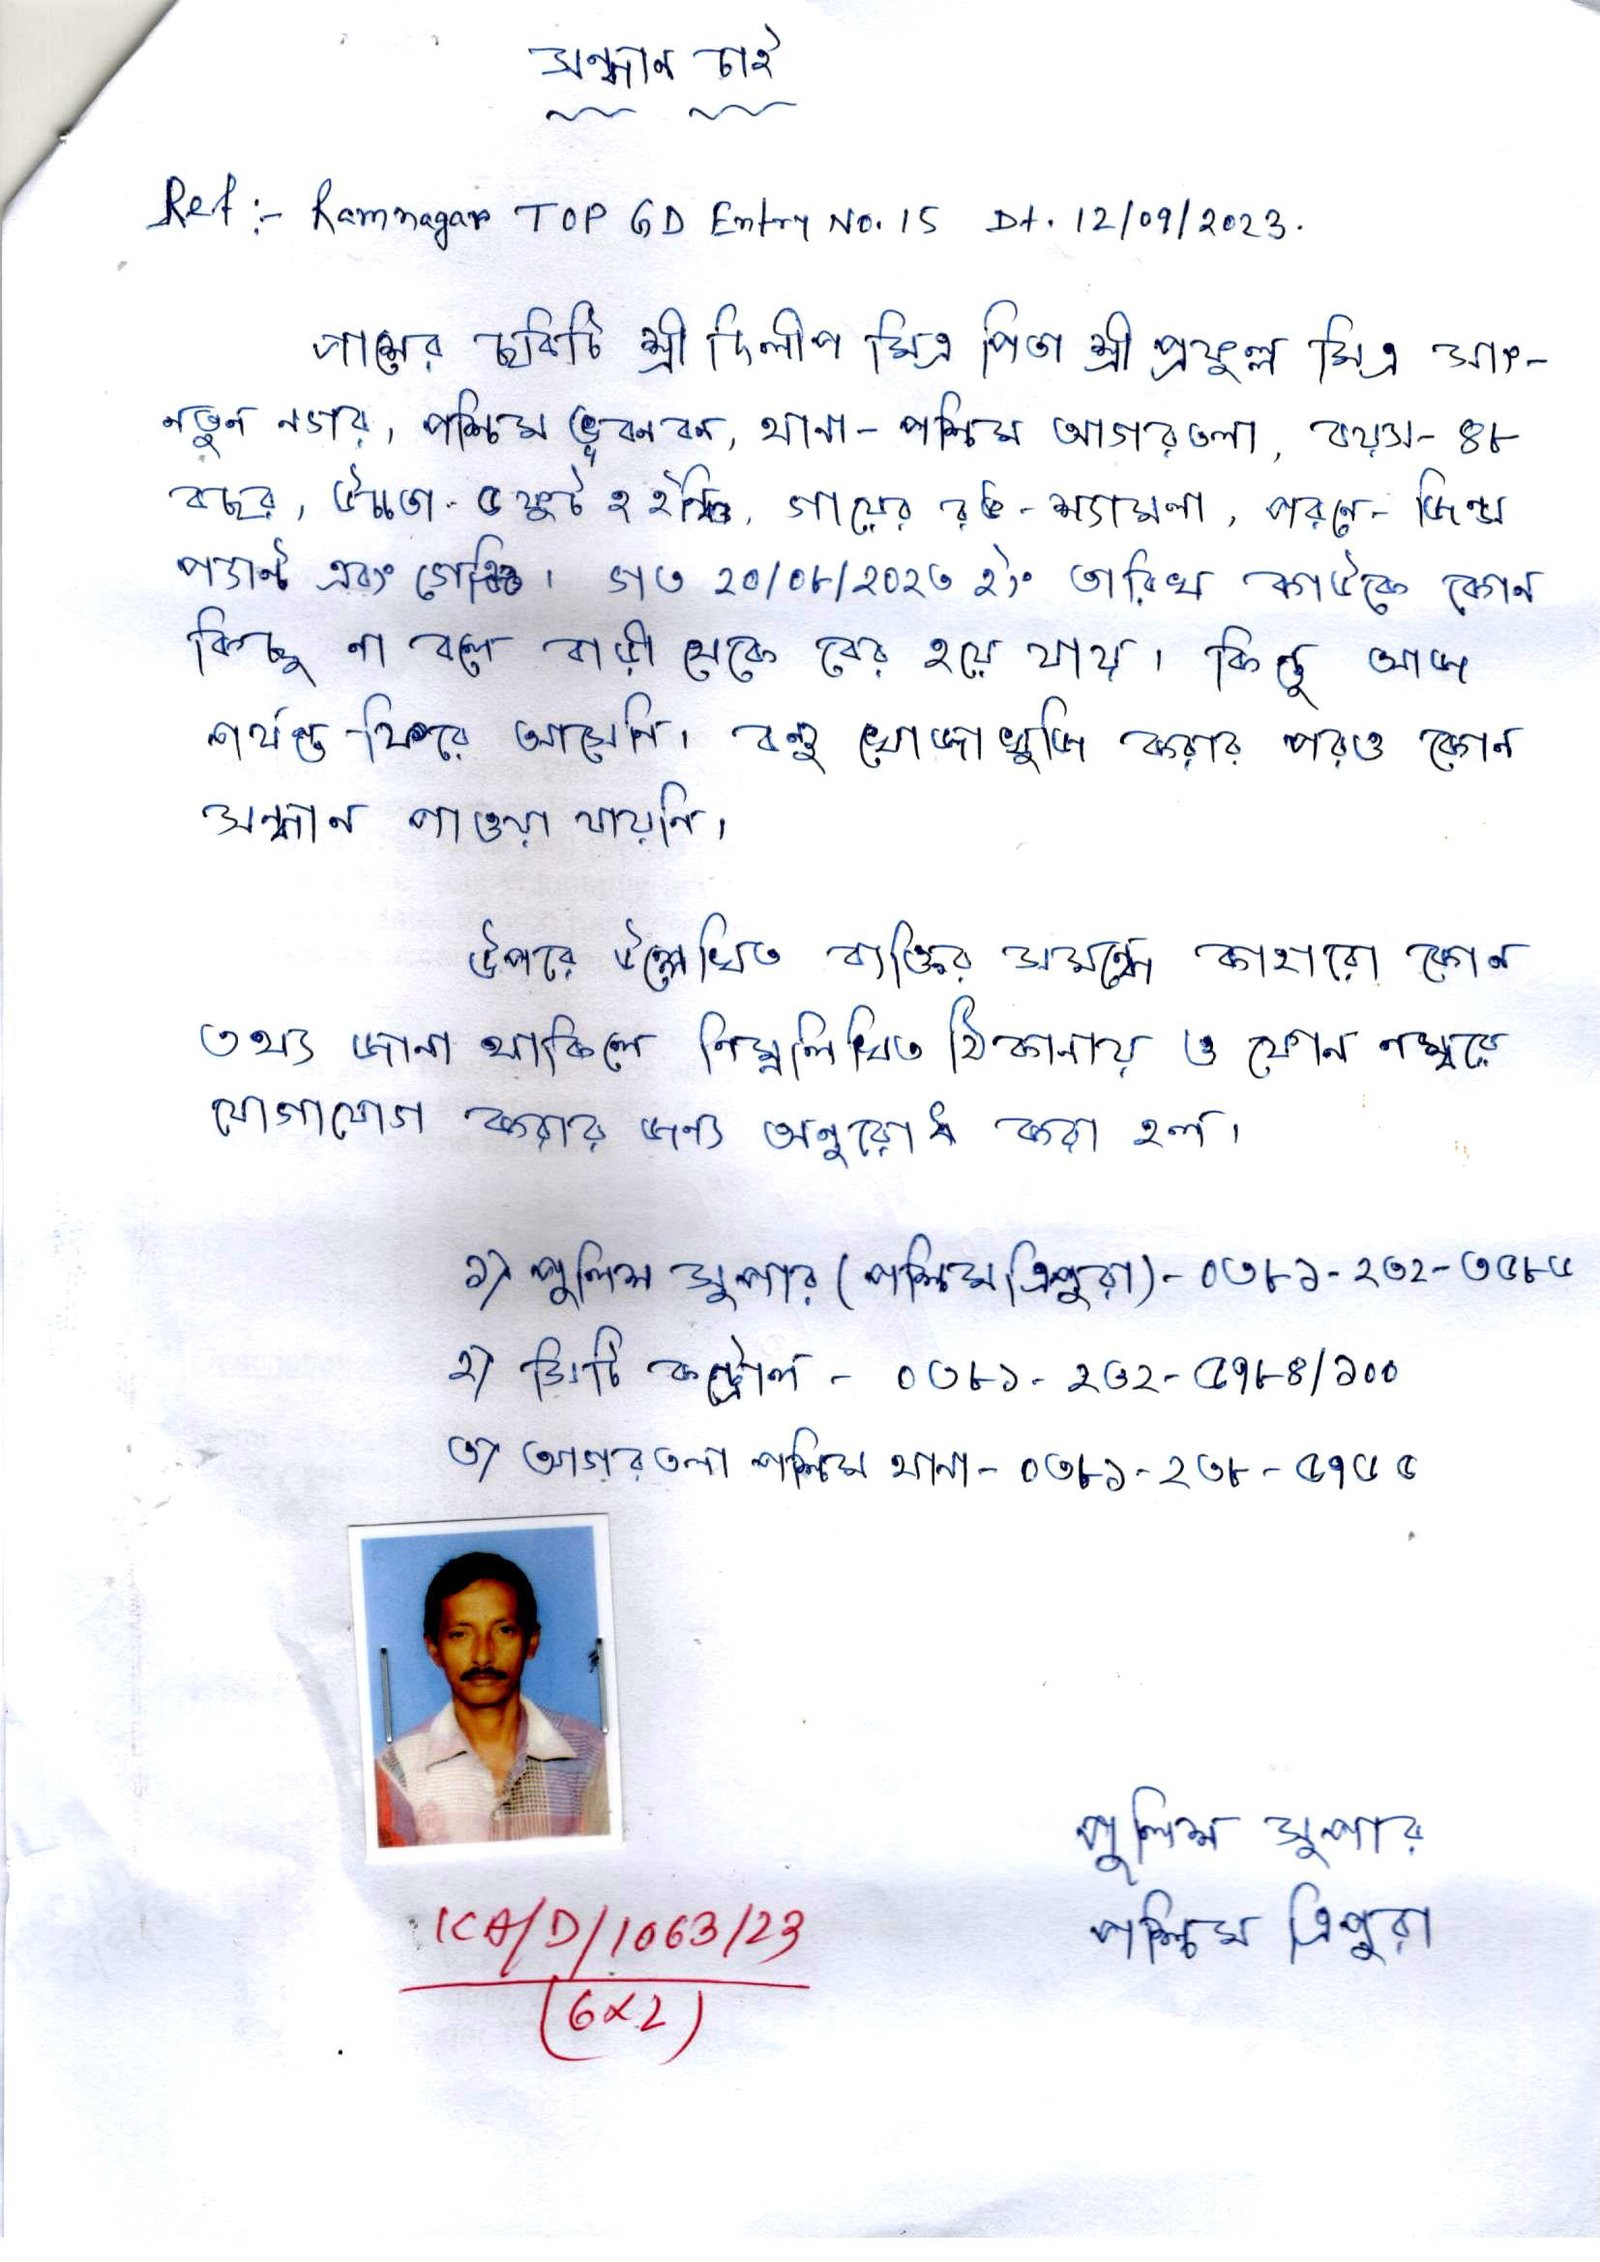 সন্ধান চাই
Ref :- Ramnagar TOP GD Entry No. 15 Dt. 12/09/2023.
পাশের ছবিটি শ্রী দিলীপ মিত্র পিতা শ্রী প্রফুল্ল মিত্র সাং-
নতুন নগর, পশ্চিম ভূবনবন, থানা - পশ্চিম আগরতলা, বয়স - ৪৮
বছর, উচ্চতা - ৫ ফুট ২ ইঞ্চি, গায়ের রঙ - শ্যামলা, পরণে - জিন্স
প্যান্ট এবং গেঞ্জি। গত ২০/০৮/২০২৩ ইং তারিখ কাউকে কোন
কিছু না বলে বাড়ী থেকে বের হয়ে যায়। কিন্তু আজ
পর্যন্ত ফিরে আসেনি। বহু খোজাখুজি করার পরও কোন
সন্ধান পাওয়া যায়নি।
উপরে উল্লেখিত ব্যক্তির সমন্ধে কাহারো কোন
তথ্য জানা থাকিলে নিম্নলিখিত ঠিকানায় ও ফোন নম্বরে
যোগাযোগ করার জন্য অনুরোধ করা হল।
১) পুলিস সুপার (পশ্চিম ত্রিপুরা) - ০৩৮১ - ২৩২ - ৩৫৮৫
২) সিটি কন্ট্রোল - ০৩৮১ - ২৩২ - ৫৭৮৪/১০০
৩) আগরতলা পশ্চিম থানা - ০৩৮১ - ২৩৮ - ৫৭৫৫
পুলিশ সুপার
পশ্চিম ত্রিপুরা
ICA/D/1063/23
(6x2)